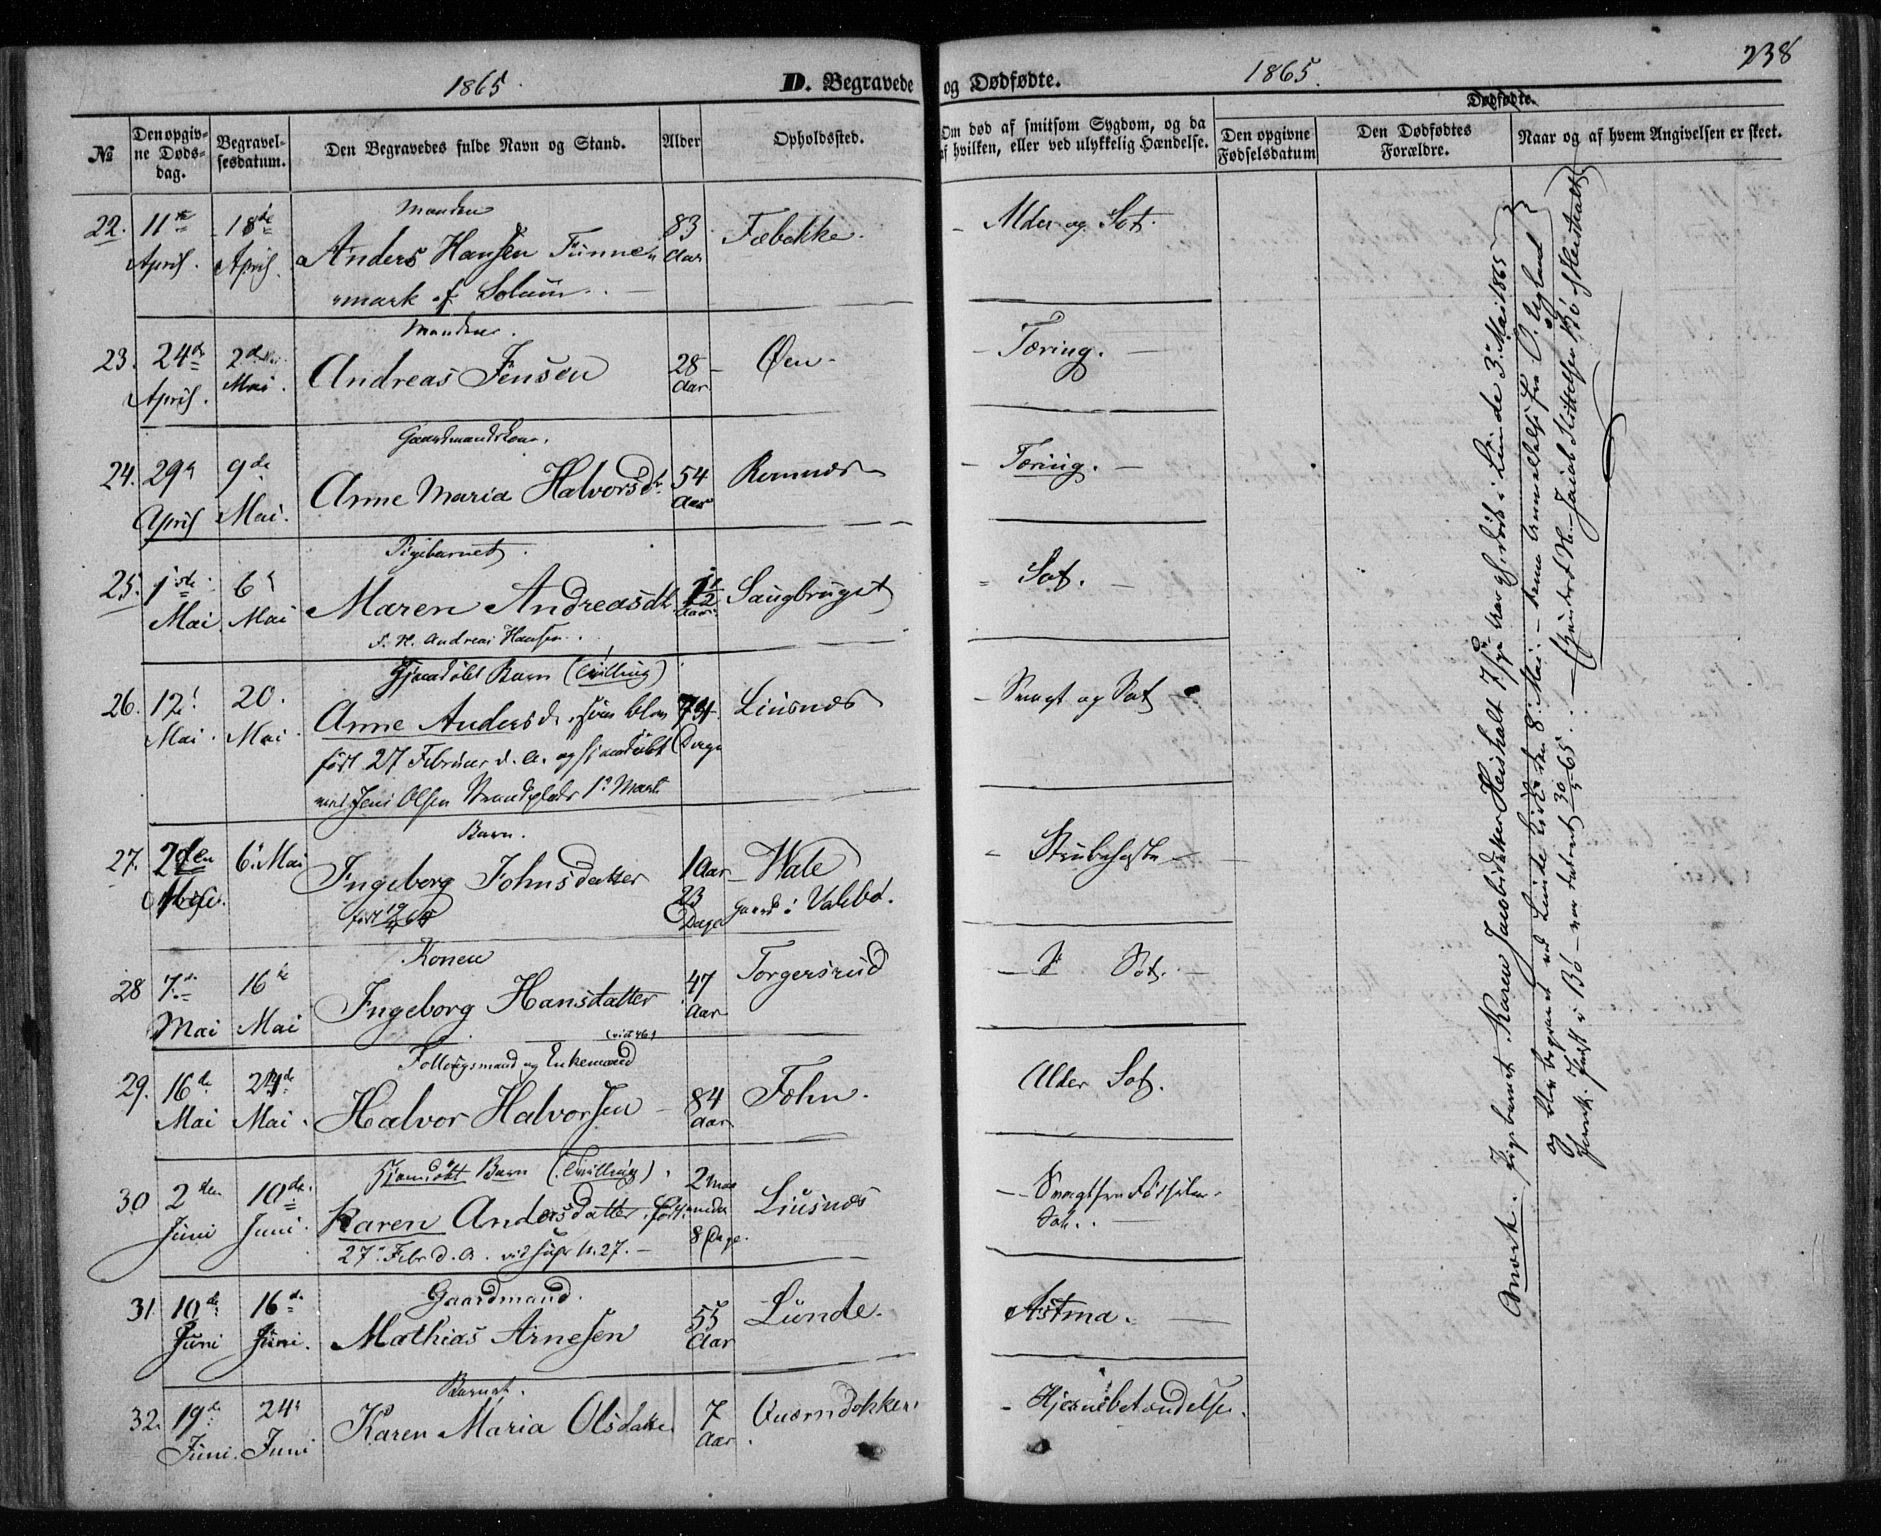 1865.
D. Begravede og Dødfødte.
1865.
238
№
Den opgivne Dødsdag.
Begravelsesdatum.
Den Begravedes fulde Navn og Stand.
Alder
Opholdssted.
Om død af smitsom Sygdom, og da
af hvilken, eller ved ulykkelig Hændelse.
Dødfødte.
Den opgivne Fødselsdatum
Den Dødfødtes Forældre.
Naar og af hvem Angivelsen er skeet.
Manden
22. 11te April. 18de April. Anders Hansen Tinne- 83 Aar
mark af Solum. Alder og Sot.
Manden.
23. 24de April. 2den Mai. Andreas Jensen 28 Aar Øen. Tæring.
Gaardmandskone.
24. 29 April 9de Mai. Anne Maria Halvorsdt. 54 Aar Romnæs Tæring.
Pigebarnet.
25. 1ste Mai 6 Mai Maren Andreasdt. 1½ Aar Saugbruget Sot.
F. H. Andreas Hansen.
Hjemdøbt Barn (Tvilling)
26. 12 Mai. 20. Mai. Anne Andersd. som blev 74 Dage Liusnæs Svagt og Sot
født 27 Februar d. A. og hjemdøbt
ved Jens Olsen Strandplads 1 Marts
Barn.
27. 2den 6 Mai Ingeborg Johnsdatter 1 Aar 23 Dage Wale Gaard i Valebø. Strubehoste
født
Konen
28 7de Mai 16de Mai Ingeborg Hansdatter 47 Aar Torgersrud Sot.
(vid 46)
Føllougsmand og Enkemand
29. 16de Mai 24de Mai. Halvor Halvorsen 84 Aar Fæhn. Alder Sot.
Hjemdøbt Barn (Tvilling).
30 2den Juni 10de Juni. Karen Andersdatter, født 2 Maaneder 8 Dage. Liusnæs Svagt fra Fødselen.
Sot.
27 Febr d. A.
Gaardmand.
31 10de Juni 16de Juni. Mathias Arnesen 55 Aar Lunde. Astma.
Barnet.
32. 19de Juni. 24 Juni Karen Maria Olsdatter 7 Aar Hjernebetændelse.
Anmerk. Pigebarnet Karen Jacobsdatter Heishalt døde i Lunde 3 Mai 1865
og blev begravet ved Lunde Kirke den 8 Mai. - Anmeldelse fra
Bø - var dateret 30/5 65.